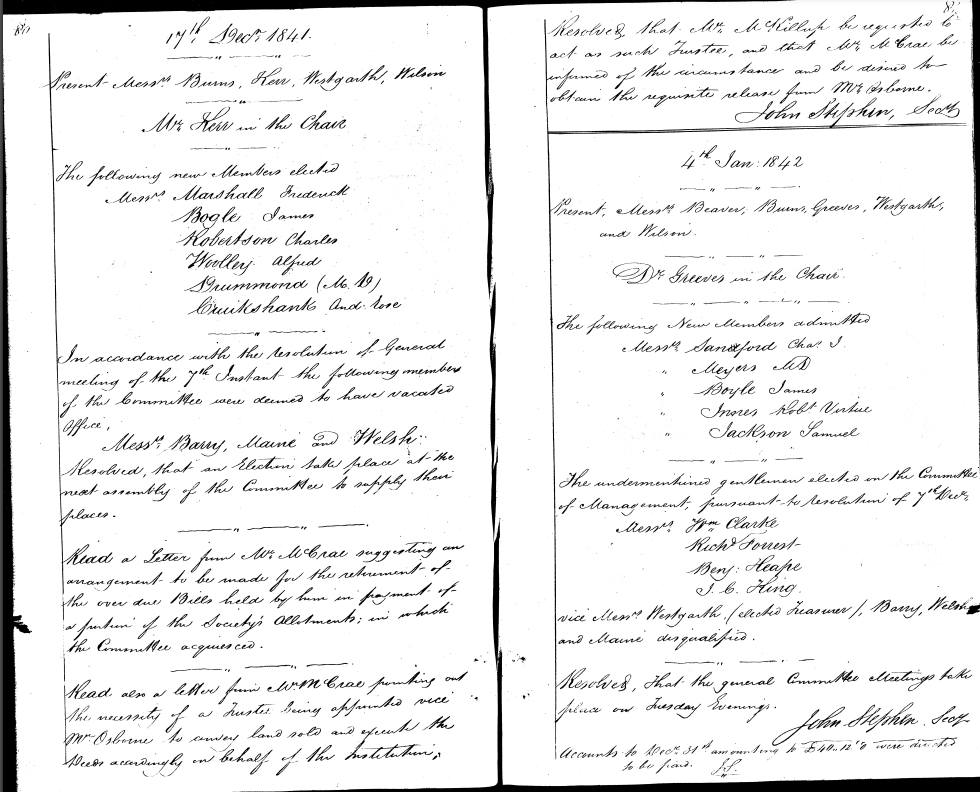 80
17th Decr 1841.
Present Messrs Burns, Kerr, Westgarth, Wilson
Mr Kerr in the Chair
The following new Members elected
Messrs Marshall Frederick
Bogle James
Robertson Charles
Woolley Alfred
Drummond (M.D)
Cruikshank And. Rose
In accordance with the resolution of General
meeting of the 7th Instant the following members
of the Committee were deemed to have vacated
Office,
Messrs Barry, Maine and Welsh:
Resolved, that an Election take place at the
next assembly of the Committee to supply their
places.
Read a Letter from Mr McCrae suggesting an
arrangement to be made for the retirement of
the over due Bills held by him in payment of
a portion of the Society's Allotments; in which
the Committee acquiesced.
Read also a letter from Mr McCrae pointing out
the necessity of a Trustee being appointed vice
Mr Osborne to convey land sold and execute the
Deeds accordingly on behalf of the Institution;
Resolved, that Mr McKillup be requested to
act as such Trustee, and that Mr McCrae be
informed of the circumstance and be desired to
obtain the requisite release from Mr Osborne.
John Stephen, Secy
4th Jan: 1842
Present, Messrs Beaver, Burns, Greeves, Westgarth,
and Wilson.
Dr Greeves in the Chair
The following New Members admitted
Messrs Sandford Chas. J.
" Meyers MD
" Boyle James
" Innes Robt Virtue
" Jackson Samuel
The undermentioned gentlemen elected on the Committee
of Management, pursuant to resolution of 7th Decr
Messrs Wm Clarke
Richd Forrest
Benj: Heape
J. C. King.
vice Messrs Westgarth (elected Treasurer), Barry, Welsh
and Maine disqualified.
Resolved, That the general Committee Meetings take
place on Tuesday Evenings.
John Stephen, Secy
Accounts to Decr 31st amounting to £40..12"0 were directed
to be paid. J.S.